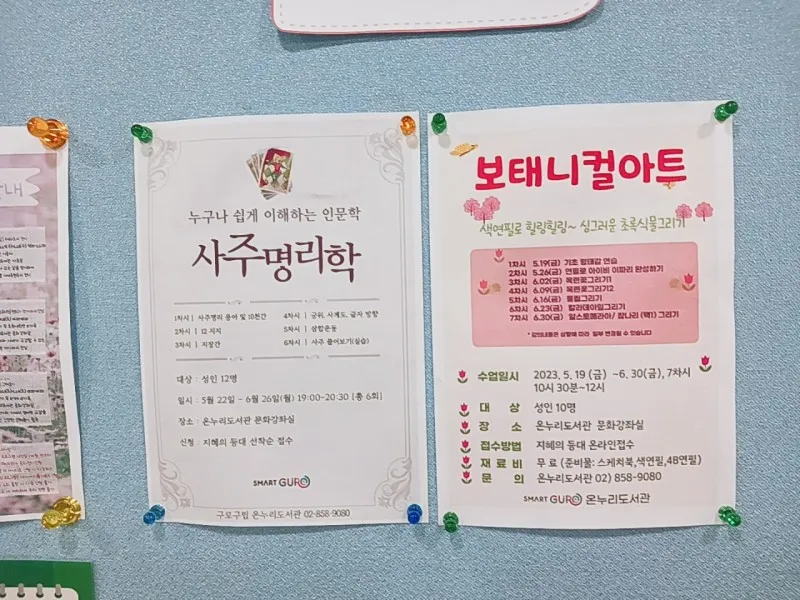 내
누구나 쉽게 이해하는 인문학
사주명리학
1차시 | 사주명리 용어 및 10천간
2차시 | 12 지지
3차시 | 지장간
4차시 | 궁위, 사계도, 글자 방향
5차시 | 삼합운동
6차시 | 사주 풀어보기(실습)
대상 : 성인 12명
일시 : 5월 22일 - 6월 26일(월) 19:00-20:30 [총 6회]
장소 : 온누리도서관 문화강좌실
신청 : 지혜의 등대 선착순 접수
SMART GURO
구로구립 온누리도서관 02-858-9080
보태니컬아트
색연필로 힐링힐링~ 싱그러운 초록식물그리기
1차시 5.19(금) 기초 형태감 연습
2차시 5.26(금) 연필로 아이비 이파리 완성하기
3차시 6.02(금) 목련꽃그리기1
4차시 6.09(금) 목련꽃그리기2
5차시 6.16(금) 튤립그리기
6차시 6.23(금) 칼라데아잎그리기
7차시 6.30(금) 알스트로메리아/ 참나리 (택1) 그리기
* 강의내용은 상황에 따라 일부 변경될 수 있습니다
수업일시 2023. 5. 19 (금) ~6. 30(금), 7차시
10시 30분~12시
대 상 성인 10명
장 소 온누리도서관 문화강좌실
접수방법 지혜의 등대 온라인접수
재 료 비 무 료 (준비물: 스케치북,색연필,4B연필)
문 의 온누리도서관 02) 858-9080
SMART GURO 온누리도서관